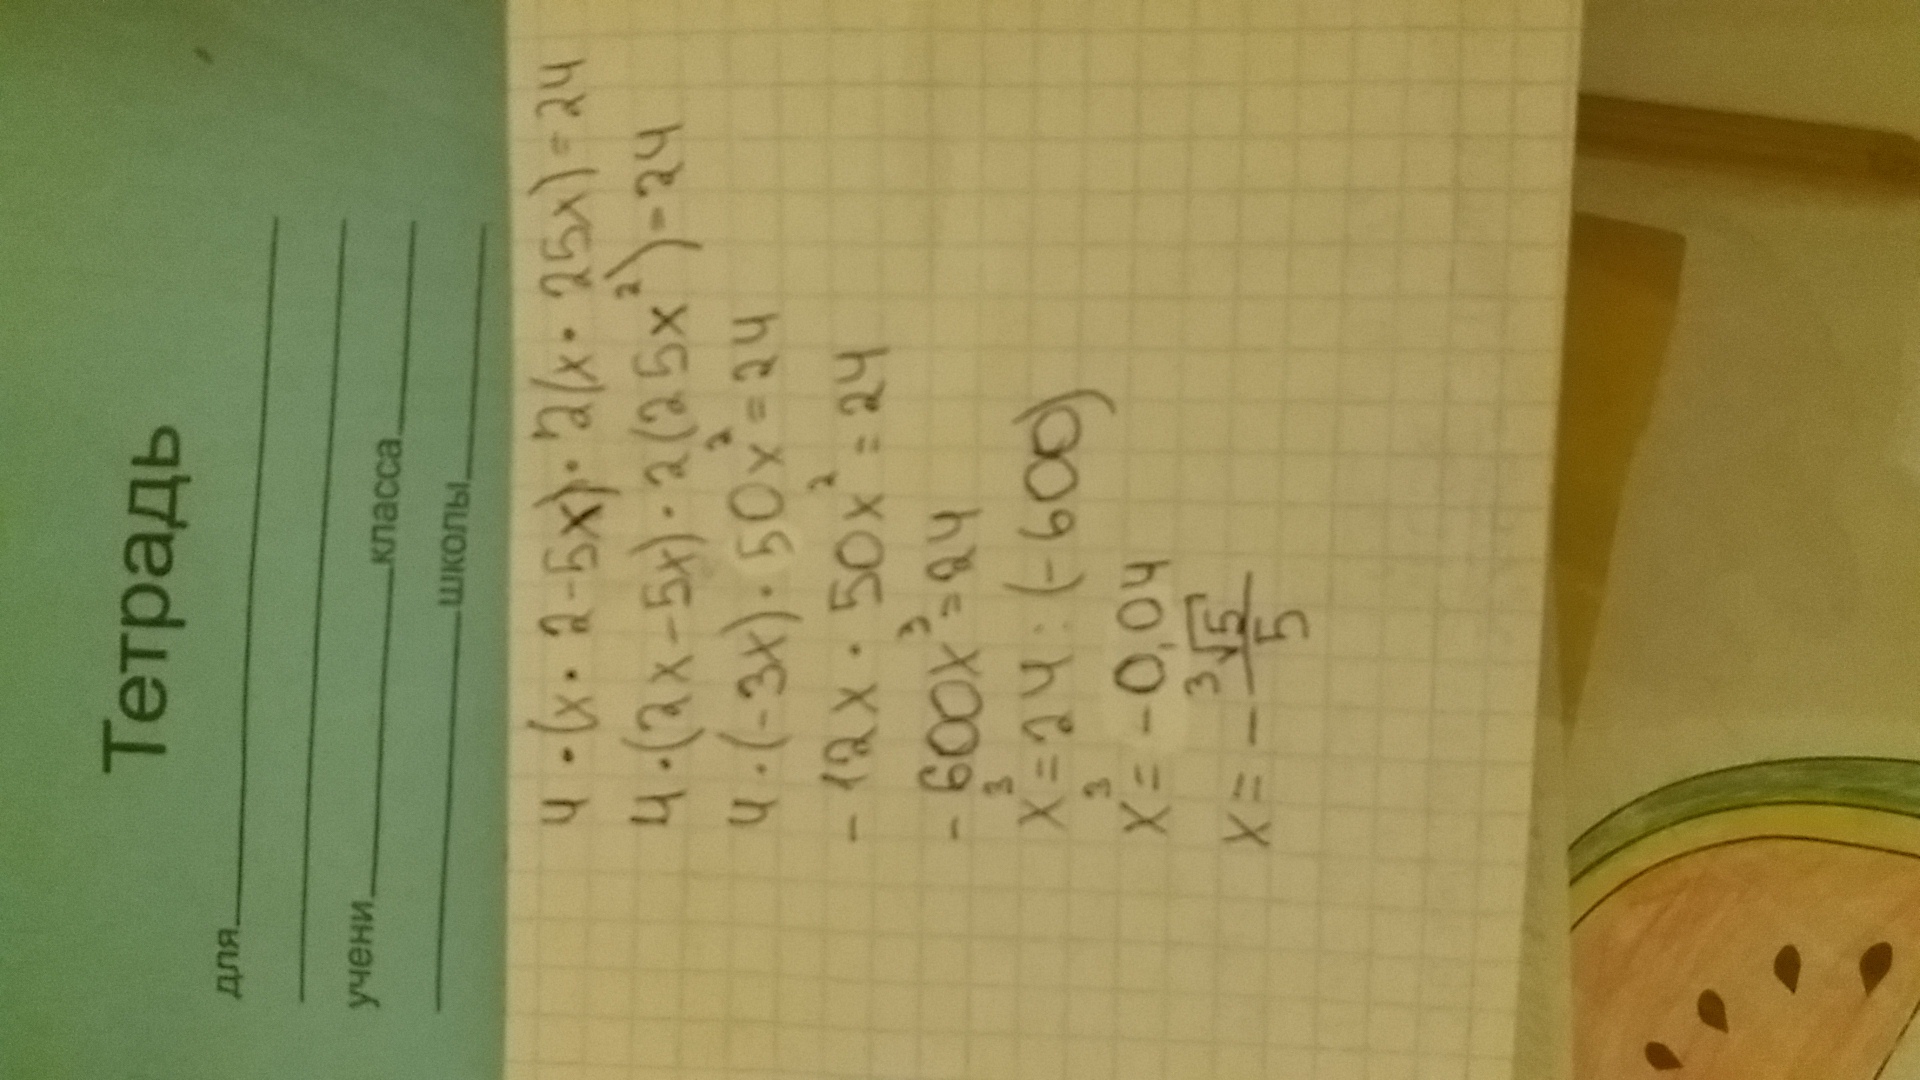 Тетрадь
для
учени класса
школы
4·(x·2-5x)·2(x·25x)=24
4·(2x-5x)·2(25x²)=24
4·(-3x)·50x²=24
-12x·50x²=24
-600x³=24
x³=24:(-600)
x³=-0,04
x=-³√5/5